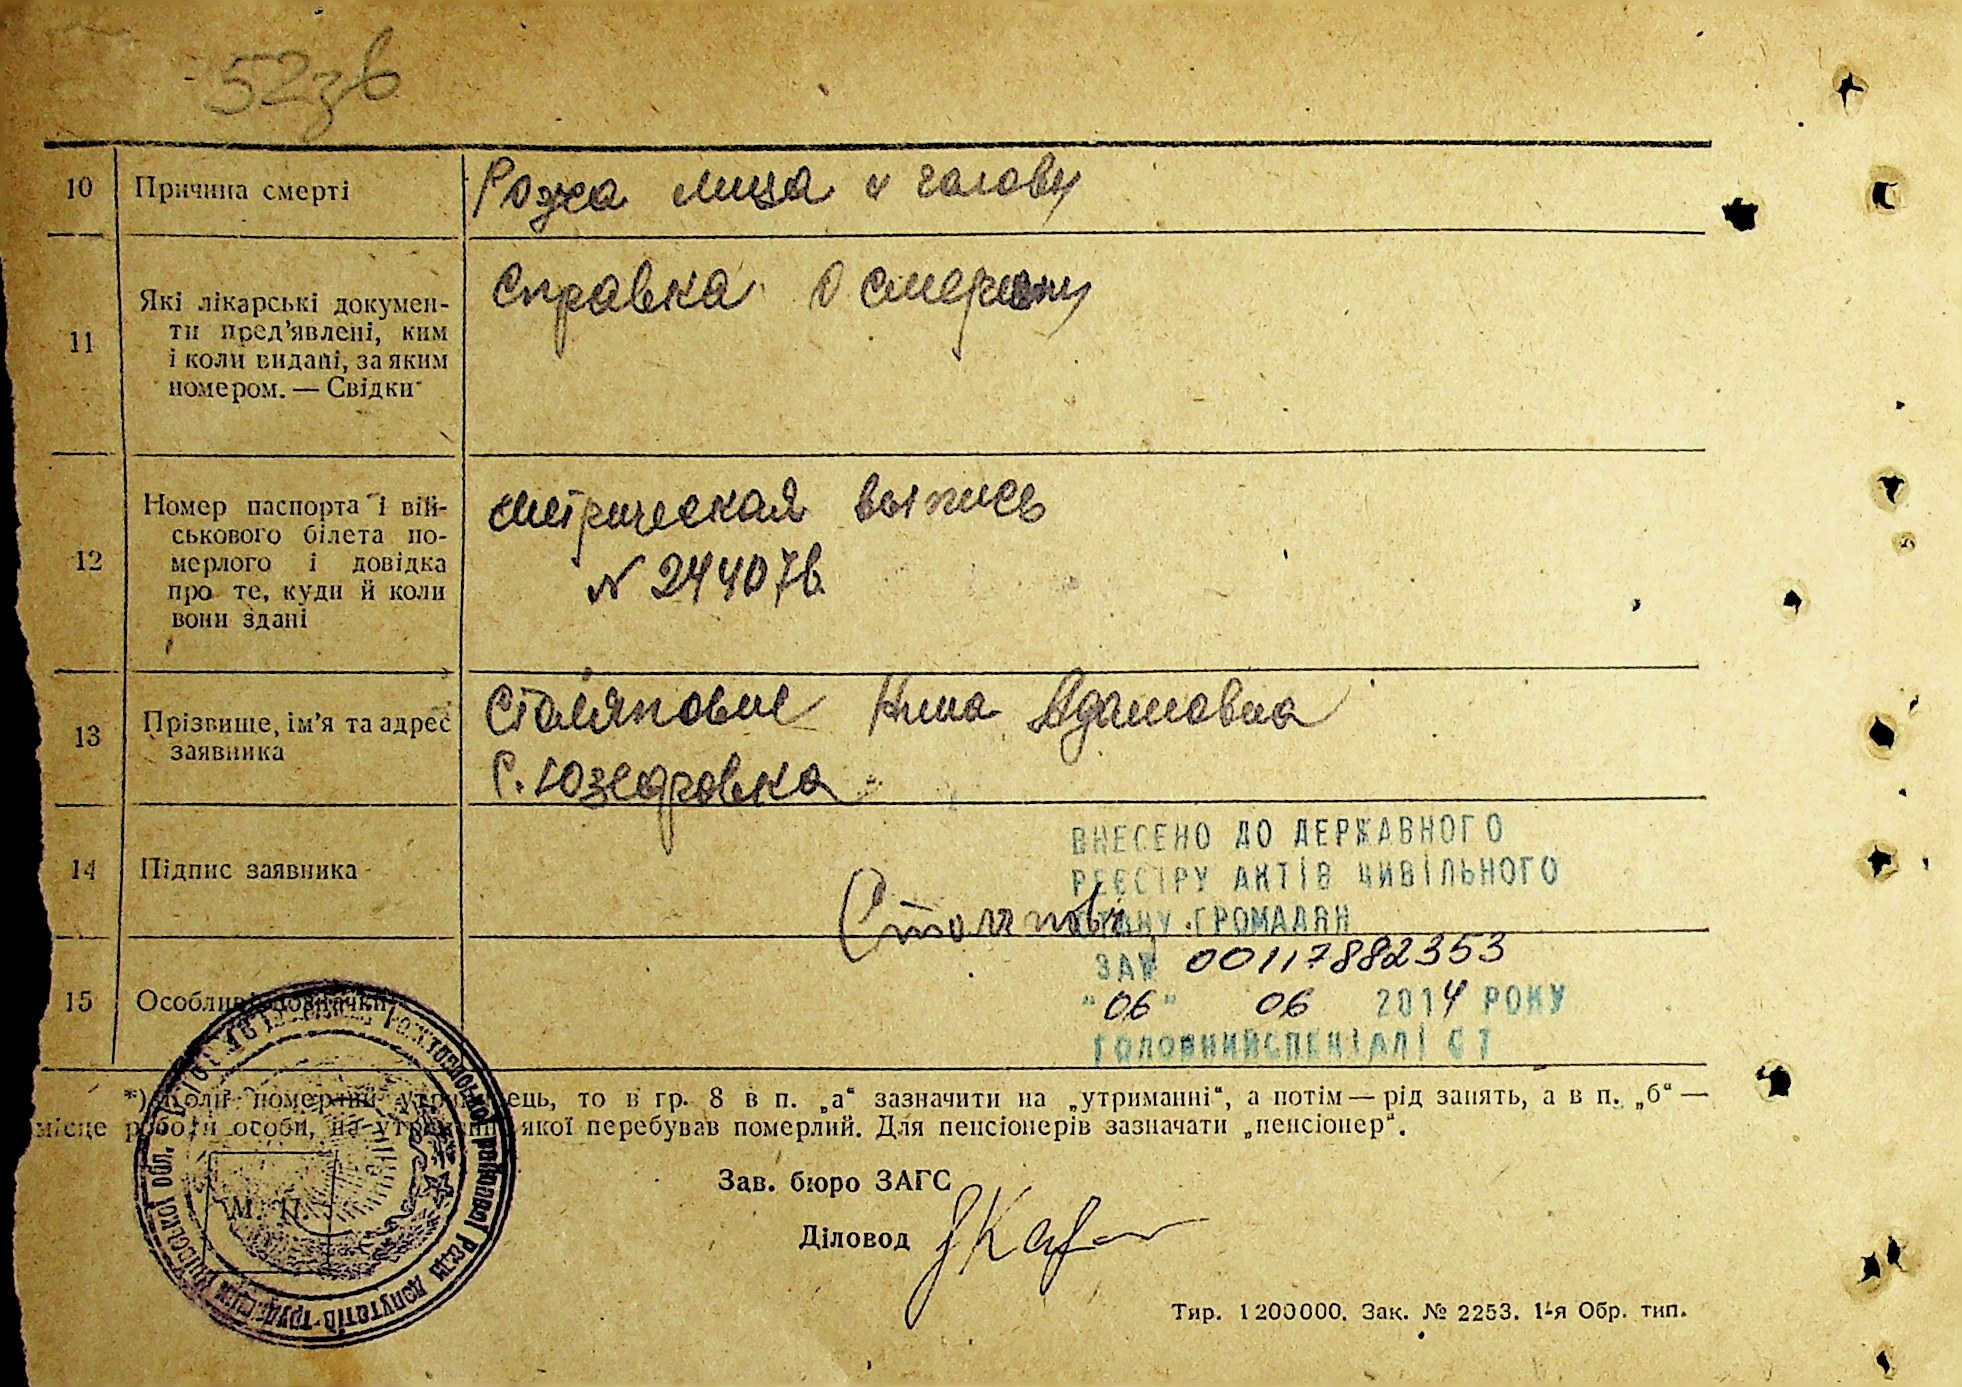 52зв
10 Причина смерті Рожа лица и голову
11 Які лікарські докумен-
ти пред’явлені, ким
і коли видані, за яким
номером. — Свідки
Справка о смерти
12 Номер паспорта і вій-
ськового білета по-
мерлого і довідка
про те, куди й коли
вони здані
метрическая выпись
N 244076
13 Прізвище, ім’я та адрес
заявника
Нина Адамовна
с. Юзефовка
14 Підпис заявника
ВНЕСЕНО ДО ДЕРЖАВНОГО
РЕЄСТРУ АКТІВ ЦИВІЛЬНОГО
СТАНУ ГРОМАДЯН
ЗА № 00117882353
"06" 06 2014 РОКУ
ГОЛОВНИЙ СПЕЦІАЛІСТ
15 Особливі позначки
*) Коли померлий утриманець, то в гр. 8 в п. „а“ зазначити на „утриманні“, а потім — рід занять, а в п. „б“ —
місце роботи особи, на утриманні якої перебував померлий. Для пенсіонерів зазначати „пенсіонер“.
Зав. бюро ЗАГС
Діловод
М. П.
районної Ради депутатів трудящих обл.
Тир. 1200000. Зак. № 2253. 1-я Обр. тип.